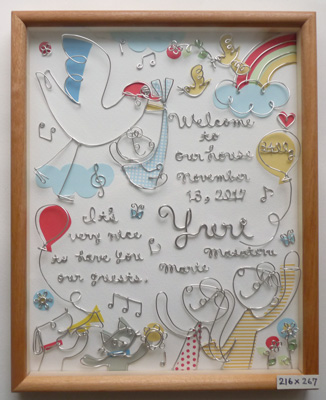 Welcome
to
our house
November
13, 2017
Yuri
It's
very nice
to have you
our guests.
Masatoru
Marie
216×267